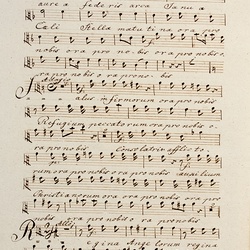 aurea federis arca Janua
Celi Stella matutina ora pro
nobis ora pro nobis ora pro nobis o
ra pro nobis ora pro nobis
Allegro
Salus infirmorum ora pro nobis
Refugium peccatorum ora pro nobis o
ra pro nobis Consolatrix afflicto
rum ora pro nobis ora pro nobis auxilium
Christianorum ora pro nobis ora pro
nobis ora pro nobis o ra pro nobis
Allo
Regina Angelorum regina